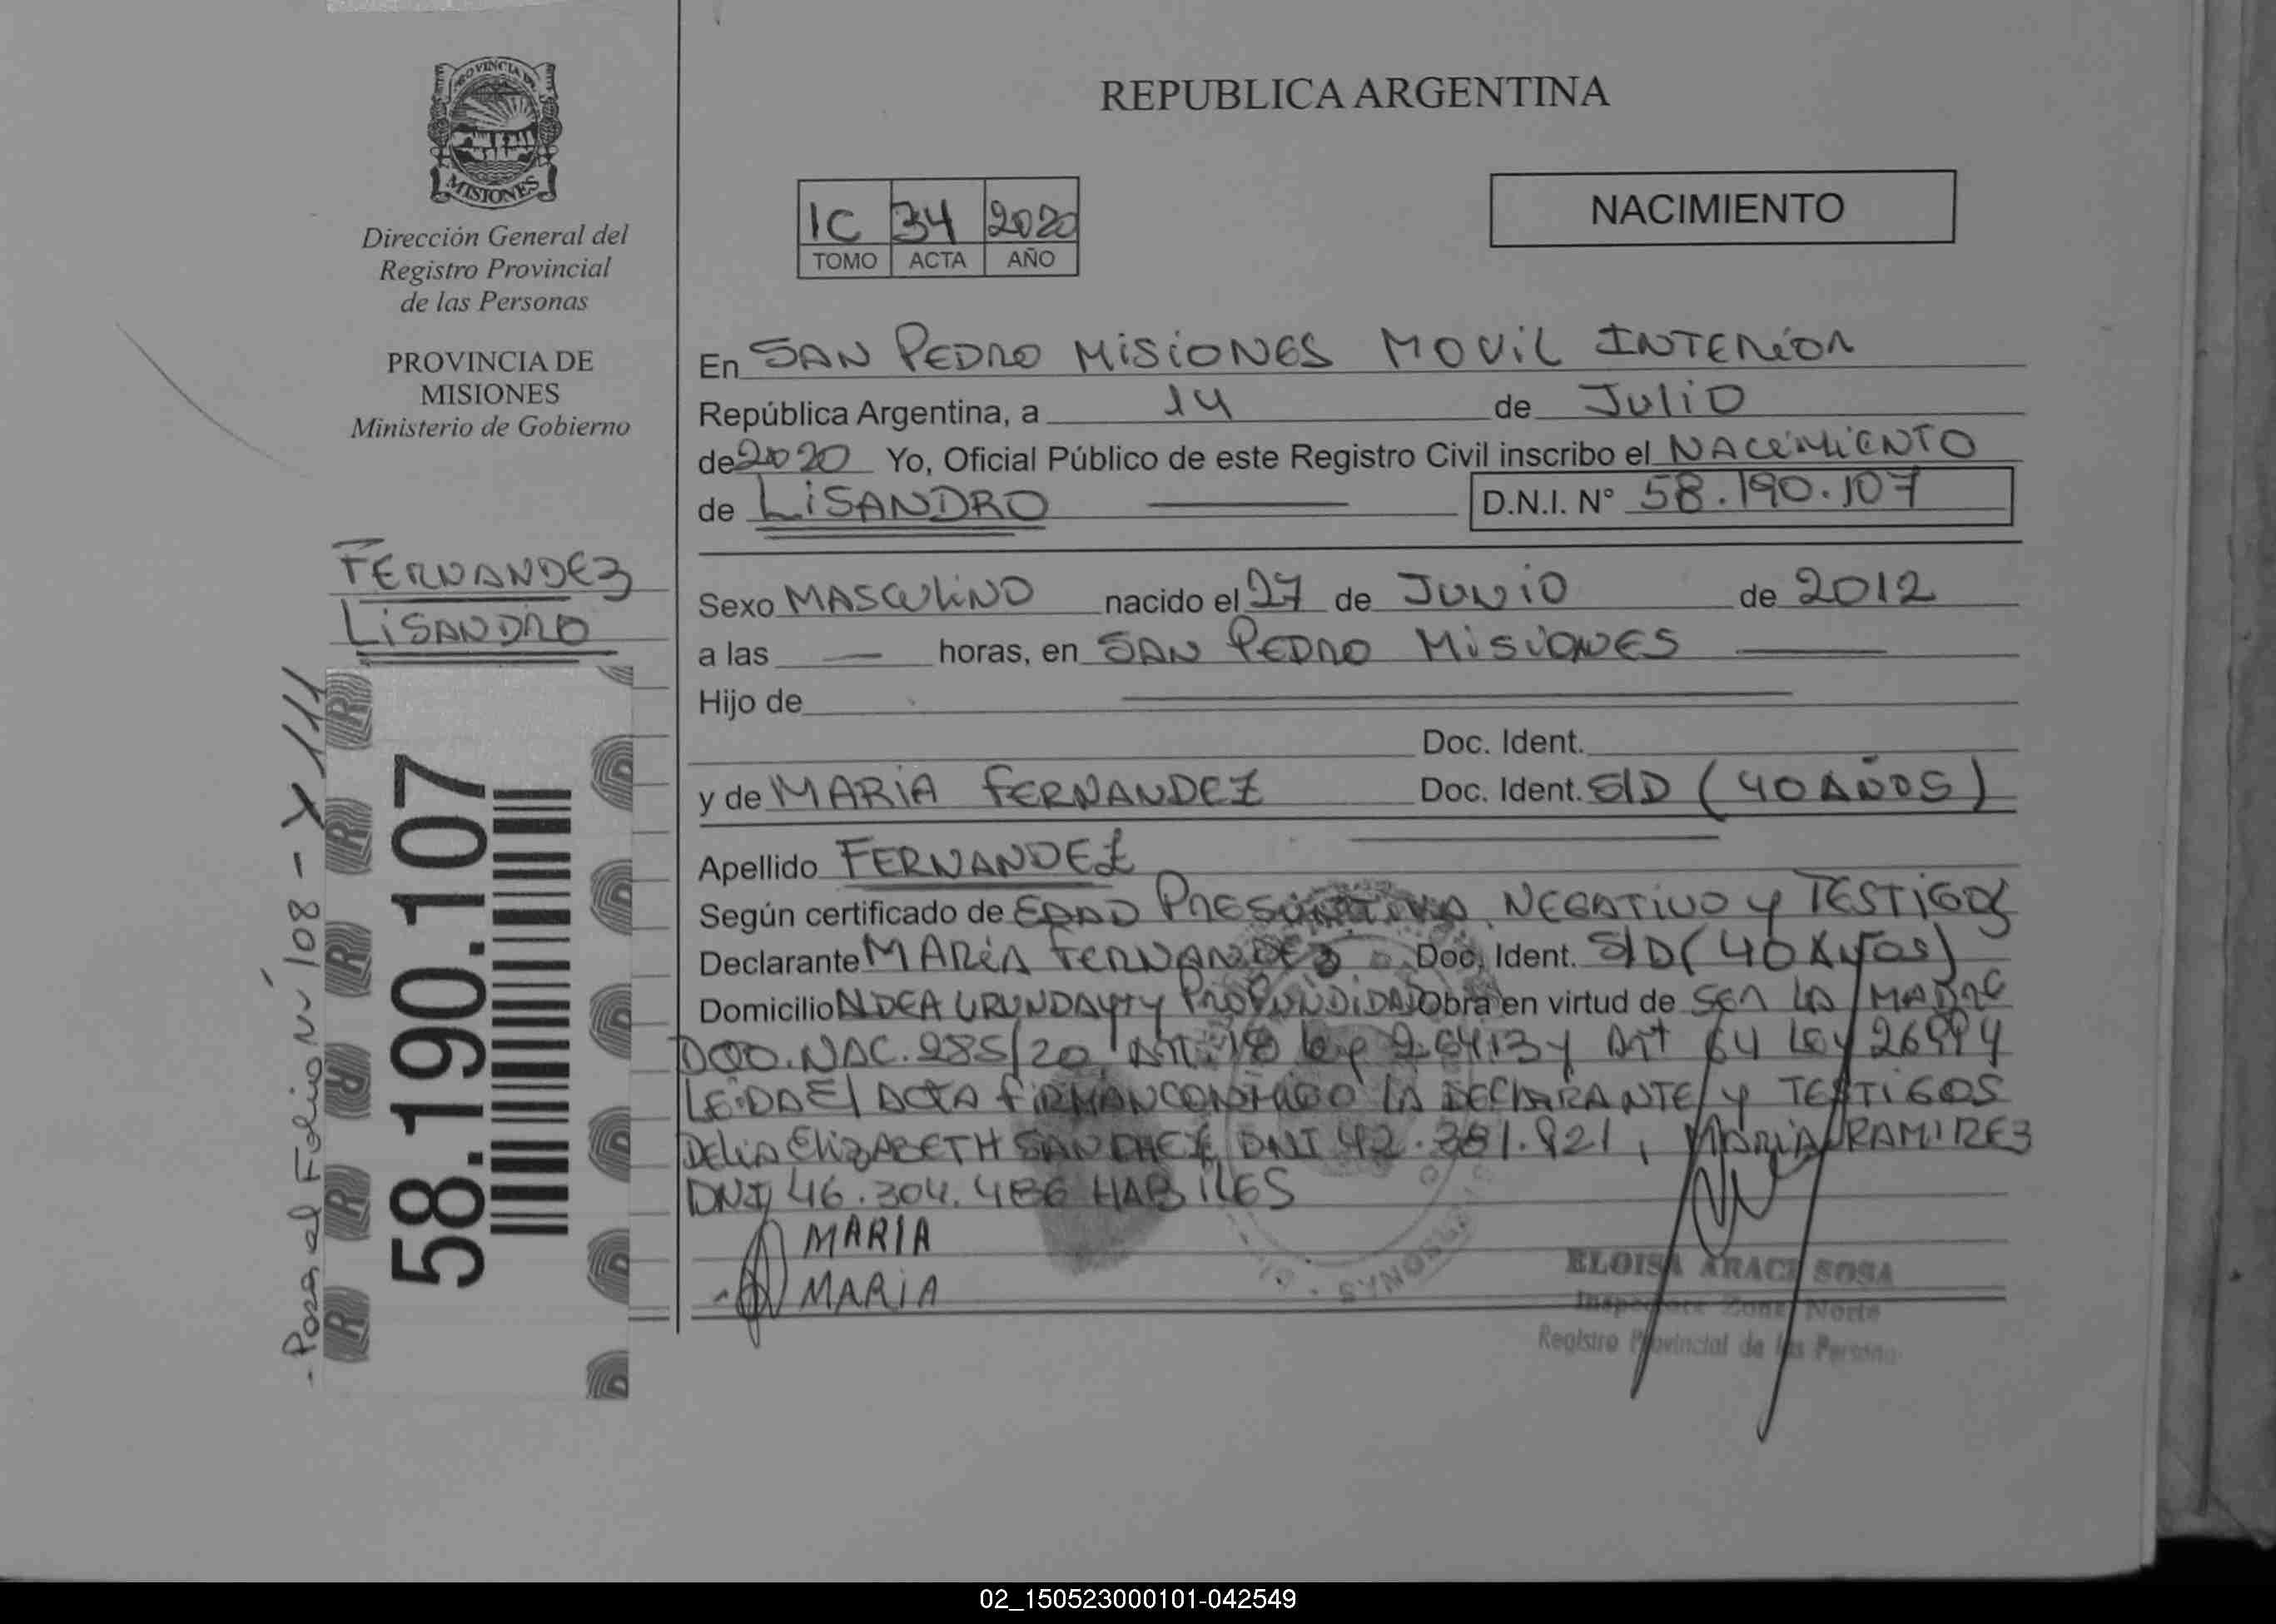 PROVINCIA DE
MISIONES
Dirección General del
Registro Provincial
de las Personas
PROVINCIA DE
MISIONES
Ministerio de Gobierno
FERNANDEZ
LISANDRO
58.190.107
- Pasa al Folio Nº 108 -
REPUBLICA ARGENTINA
IC 34 2020
TOMO ACTA AÑO
NACIMIENTO
En SAN PEDRO MISIONES MOVIL INTERIOR
República Argentina, a 14 de JULIO
de 2020 Yo, Oficial Público de este Registro Civil inscribo el NACIMIENTO
de LISANDRO D.N.I. N° 58.190.107
Sexo MASCULINO nacido el 27 de JUNIO de 2012
a las — horas, en SAN PEDRO MISIONES
Hijo de
Doc. Ident.
y de MARIA FERNANDEZ Doc. Ident. S/D (40 AÑOS)
Apellido FERNANDEZ
Según certificado de EDAD PRESUNTIVA NEGATIVO Y TESTIGOS
Declarante MARIA FERNANDEZ Doc. Ident. S/D (40 AÑOS)
Domicilio ALDEA URUNDAYTY PROFUNDIDAD Obra en virtud de SER LA MADRE
NAC. 285/20, ART. 18 ley 26413 y Art 64 LEY 26994
LEIDA EL ACTA FIRMAN CONMIGO LA DECLARANTE Y TESTIGOS
DELIA ELIZABETH SANCHEZ DNI 42.381.821, MARIA RAMIREZ
DNI 46.304.486 HABILES
MARIA
MARIA
PERSONAS
ELOISA ARACI SOSA
Inspectora Zona Norte
Registro Provincial de las Personas
02_150523000101-042549